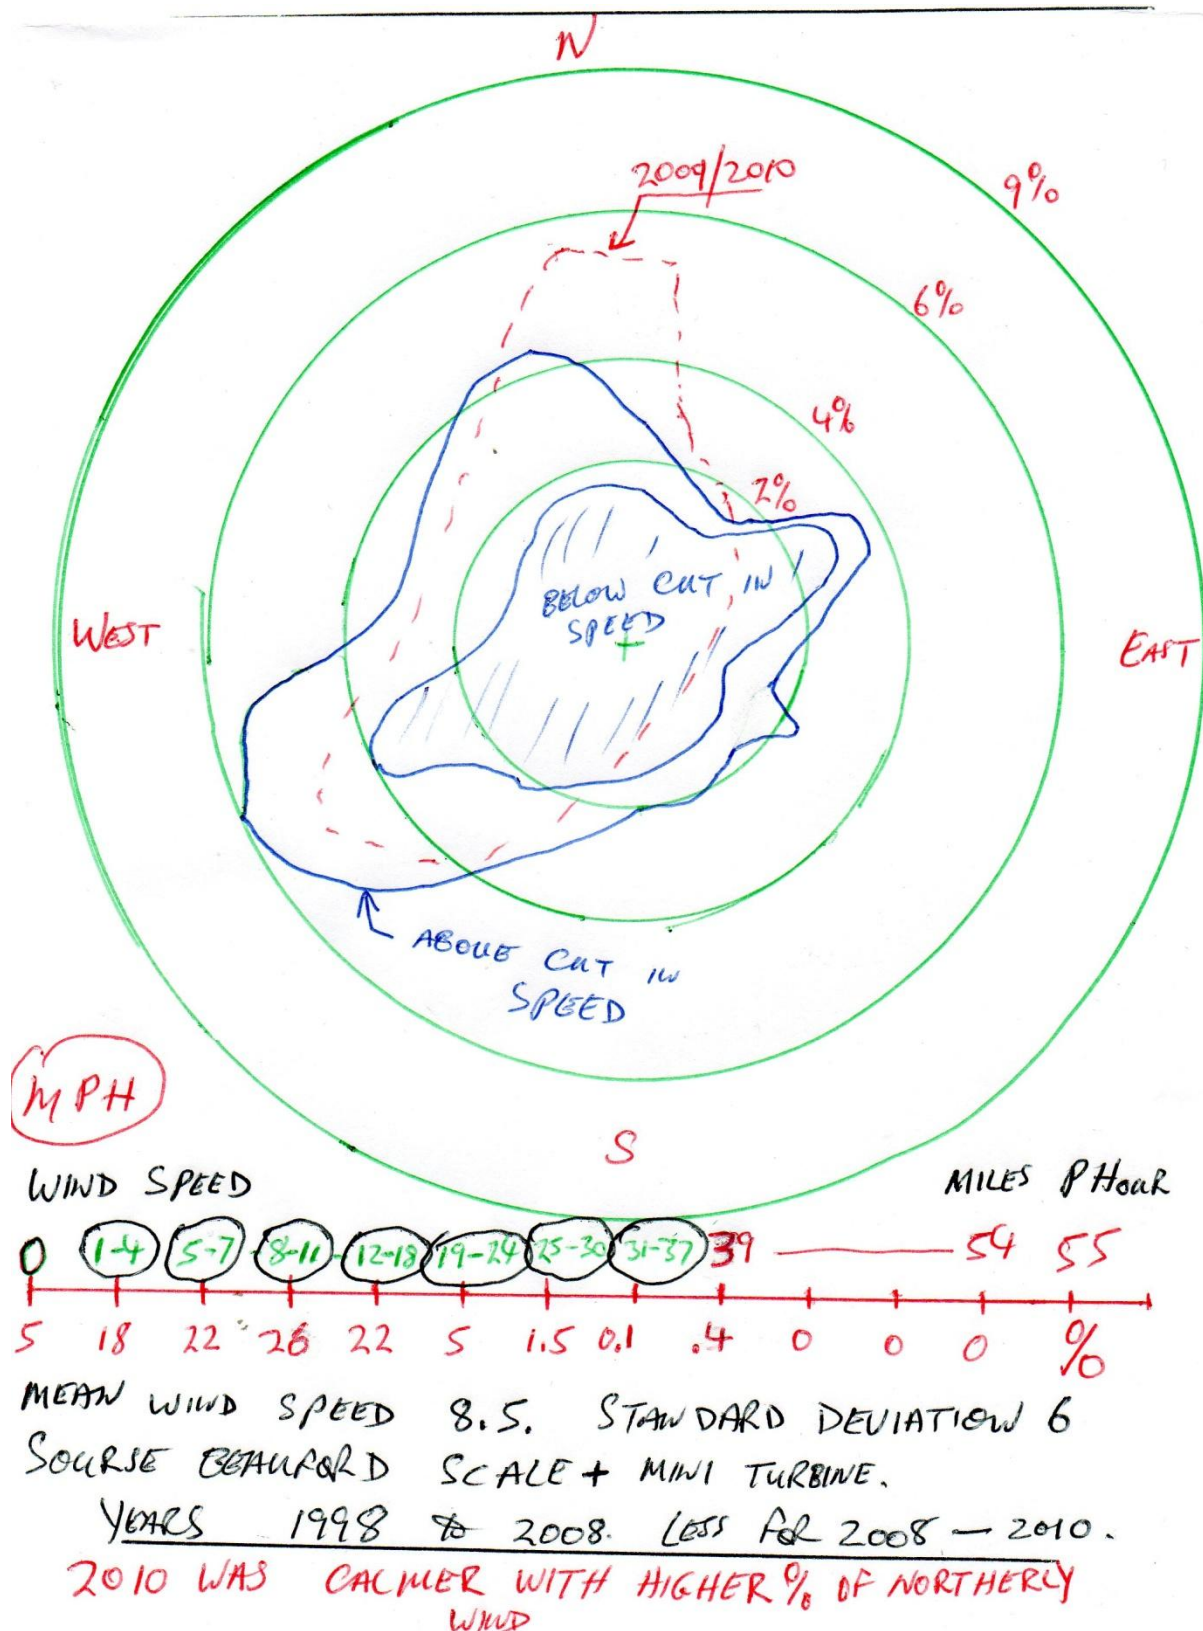 N
2009/2010
9%
6%
4%
2%
BELOW CUT IN
SPEED
WEST
EAST
ABOVE CUT IN
SPEED
MPH
S
WIND SPEED MILES P HOUR
0 1-4 5-7 8-11 12-18 19-24 25-30 31-37 39 54 55
5 18 22 26 22 5 1.5 0.1 .4 0 0 0 %
MEAN WIND SPEED 8.5. STANDARD DEVIATION 6
SOURSE BEAUFORD SCALE + MINI TURBINE.
YEARS 1998 to 2008. LESS FOR 2008 — 2010.
2010 WAS CALMER WITH HIGHER % OF NORTHERLY
WIND